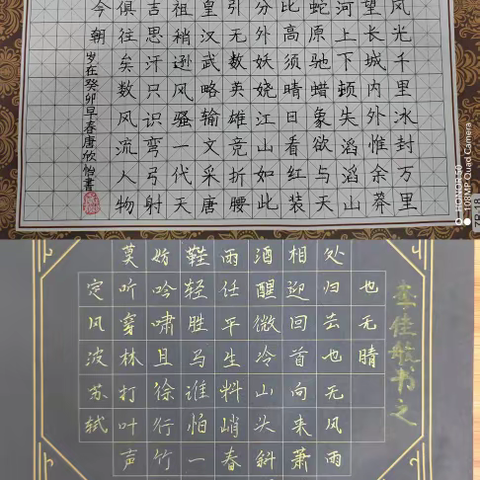 风光千里冰封万里
望长城内外惟余莽
河上下顿失滔滔山
蛇原驰蜡象欲与天
比高须晴日看红装
分外妖娆江山如此
引无数英雄竞折腰
皇汉武略输文采唐
祖稍逊风骚一代天
吉思汗只识弯弓射
俱往矣数风流人物
今朝
岁在癸卯早春唐欣怡書
HONOR 50
108MP Quad Camera
定风波苏轼
莫听穿林打叶声
妨吟啸且徐行竹
鞋轻胜马谁怕一
雨任平生料峭春
酒醒微冷山头斜
相迎回首向来萧
处归去也无风雨
也无晴
李佳航书之